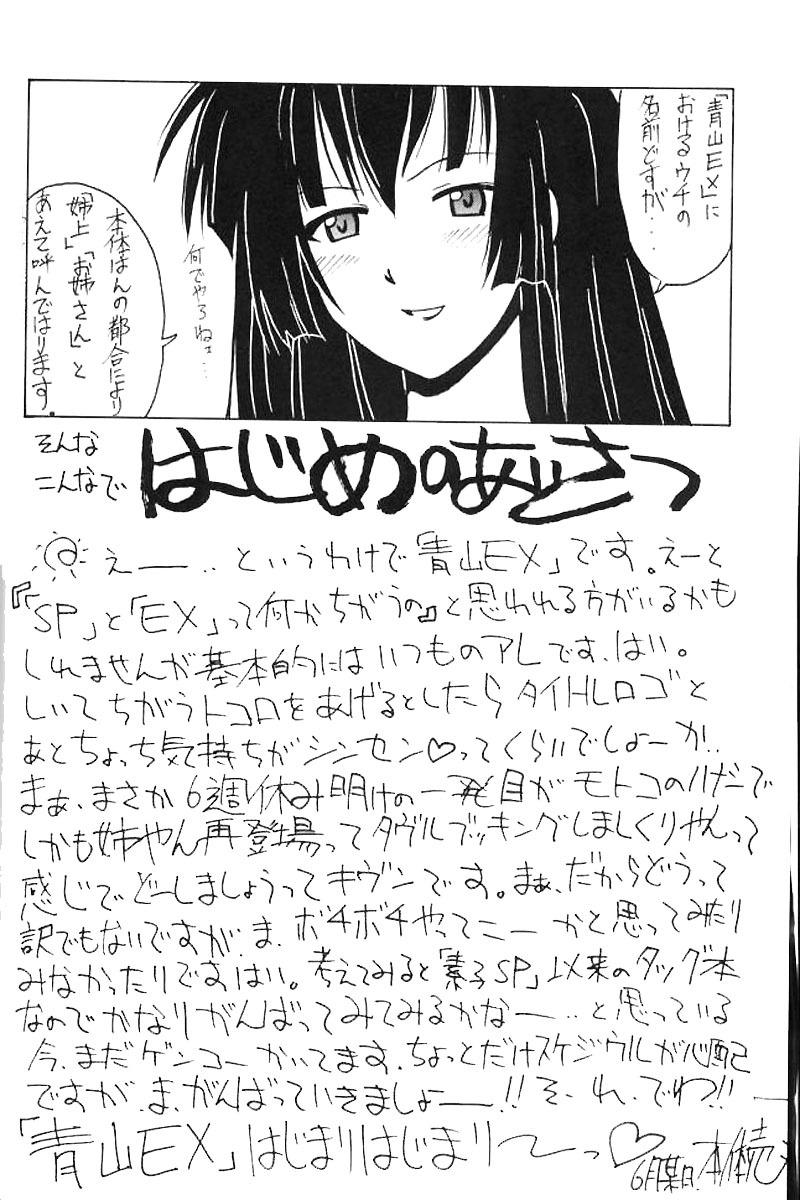 「青山EX」に
おけるウチの
名前どすが…
何でやろねェ…
本体はんの都合により
姉上」「お姉さん」と
あえて呼んではります。
そんな
こんなで
はじめのあいさつ
えー‥というわけで「青山EX」です。えーと
『「SP」と「EX」って何かちがうの』と思われる方がいるかも
しれませんが基本的にはいつものアレです、はい。
しいてちがうトコロをあげるとしたらタイトルロゴと
あとちょっち気持ちがシンセン♡ってくらいでしょーか‥
まぁ、まさか6週休み明けの一発目がモトコのハダーで
しかも姉やん再登場ってダヴルブッキングしましくりやんって
感じでどーしましょうってキヴンです。まぁ、だからどうって
訳でもないですが、ま、ボチボチやってこーかと思ってみたり
みなかったりですはい。考えてみると「素子SP」以来のタッグ本
なのでかなりがんばってみてみるかなー‥と思っている
今、まだゲンコーかいてます、ちょっとだけスケジウルが心配
ですが、ま、がんばっていきましょー!!そ、れ、でわ!!
「青山EX」はじまりはじまり〜っ♡
6月某日 本体売